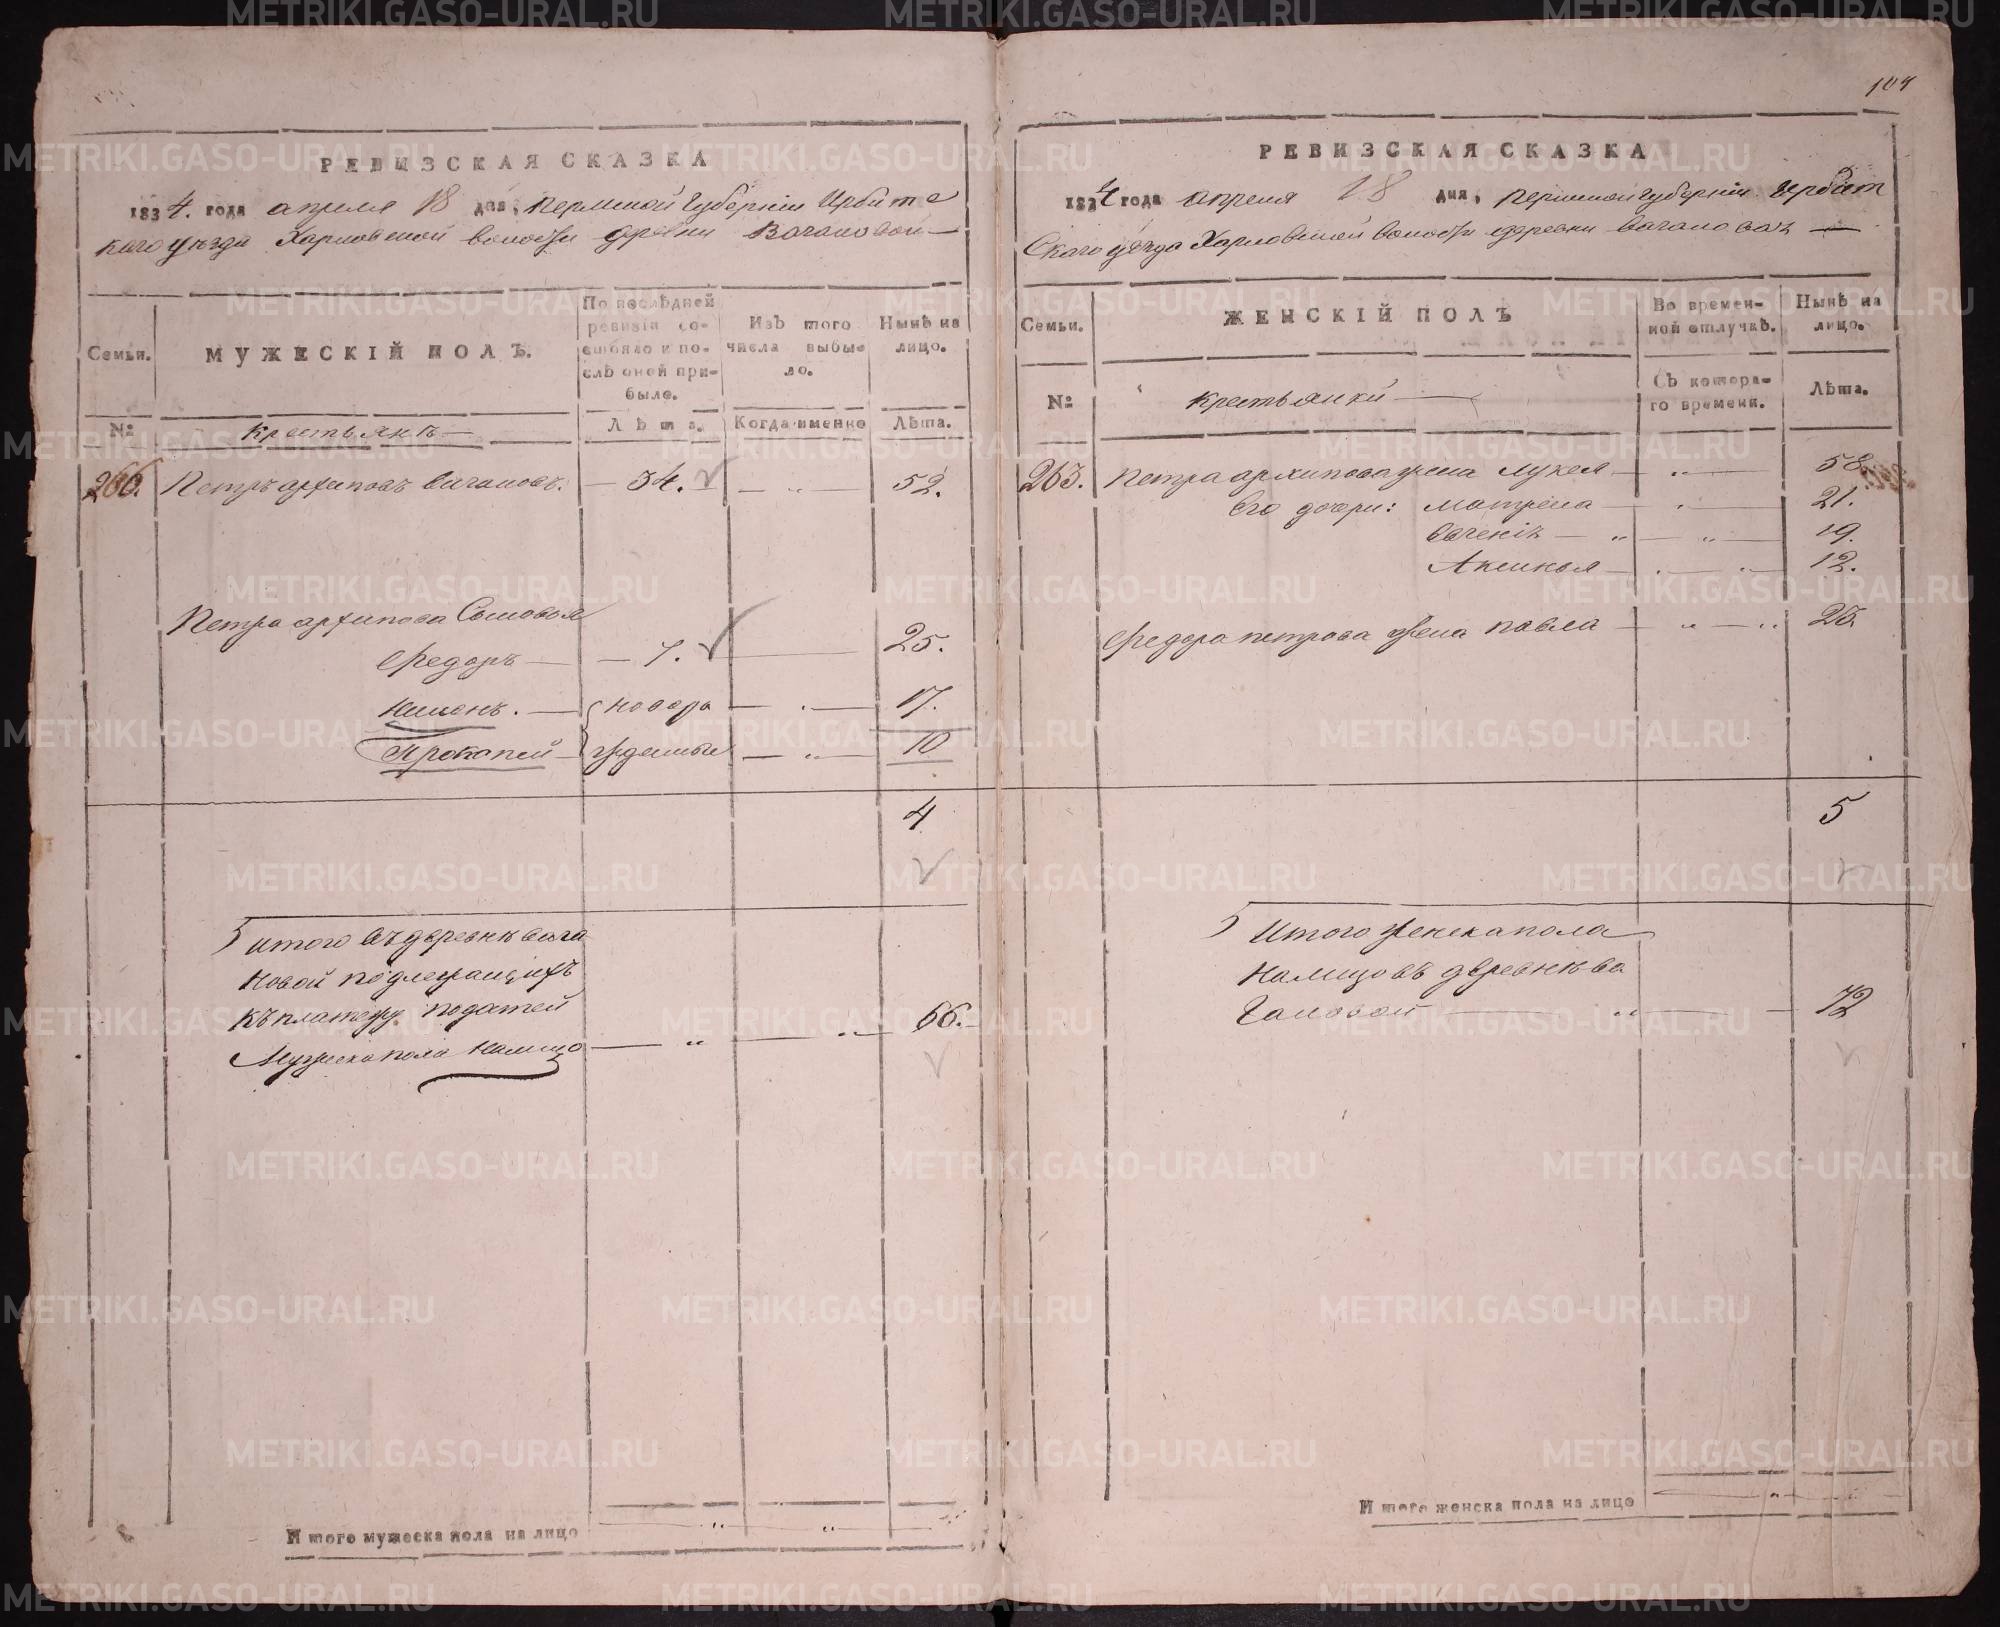 104
РЕВИЗСКАЯ СКАЗКА
1834. года апреля 18 дня, Пермской Губернiи Ирбитс
каго уезда Харловской волости дрвни Вагановой
Семьи.
МУЖЕСКIЙ ПОЛЪ.
По послѣдней ревизiи состояло и послѣ оной прибыло.
Изъ того числа выбыло.
Нынѣ на лицо.
№
Крестьянъ
Лѣта.
Когда именно
Лѣта.
266. Петръ архиповъ Вагановъ. — 34. — „ — 52.
Петра архипова Сыновья
Федоръ — 7. — 25.
Кимонъ. — новоро — „ — 17.
Прокопей — жденные — „ — 10
4
Итого въ деревнѣ Вага
новой подлежащихъ
къ платежу податей
Мужеска пола налицо — „ — „ — 66.
Итого мужеска пола на лицо „ „
РЕВИЗСКАЯ СКАЗКА
1834 года апреля 18 дня, Пермской Губернiи Ирбит
Скаго уезда Харловской волости деревни Вагановой
Семьи.
ЖЕНСКIЙ ПОЛЪ
Во временной отлучкѣ.
Нынѣ на лицо.
№
Крестьянки
Съ котораго времени.
Лѣта.
263. Петра архипова жена Лукея — „ — 58.
Его дочери: Матрена — „ — 21.
Евгенiя — „ — „ — 19.
Аксинья — „ — 12.
Федора петрова жена павла — „ — „ 23.
5
Итого женска пола
на лицо въ деревнѣ Ва
гановой — „ — 72
Итого женска пола на лицо „
METRIKI.GASO-URAL.RU